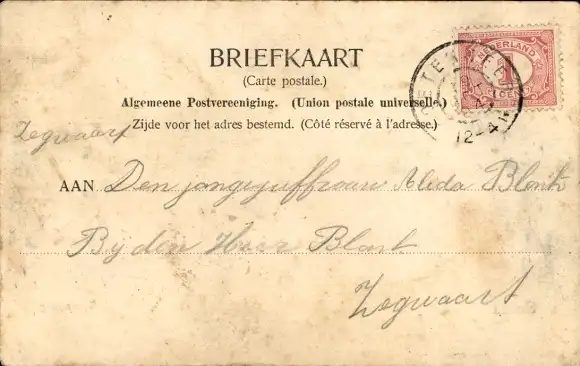 BRIEFKAART
(Carte postale.)
Algemeene Postvereeniging. (Union postale universelle.)
Zijde voor het adres bestemd. (Côté réservé à l'adresse.)
NEDERLAND
1
12-4
Zegwaart
AAN Den jongejuffrouw Aleda
Bij den Heer Blast
Zegwaart